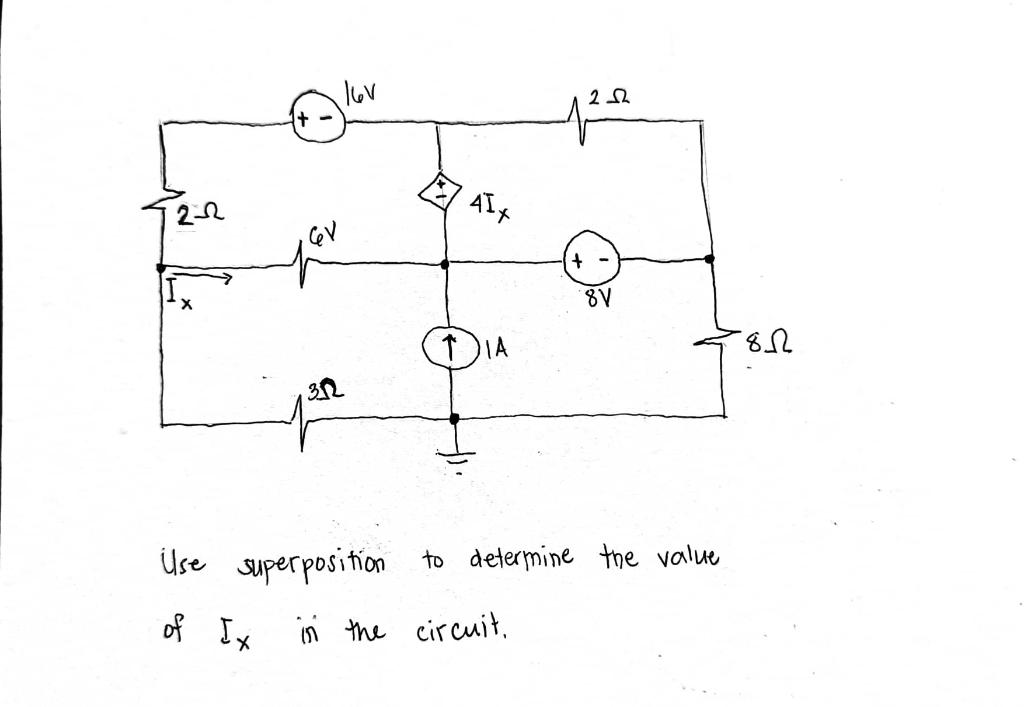 16V
+ -
2Ω
2Ω
+
-
4Ix
6V
Ix
+ -
8V
1A
8Ω
3Ω
Use superposition to determine the value
of Ix in the circuit.